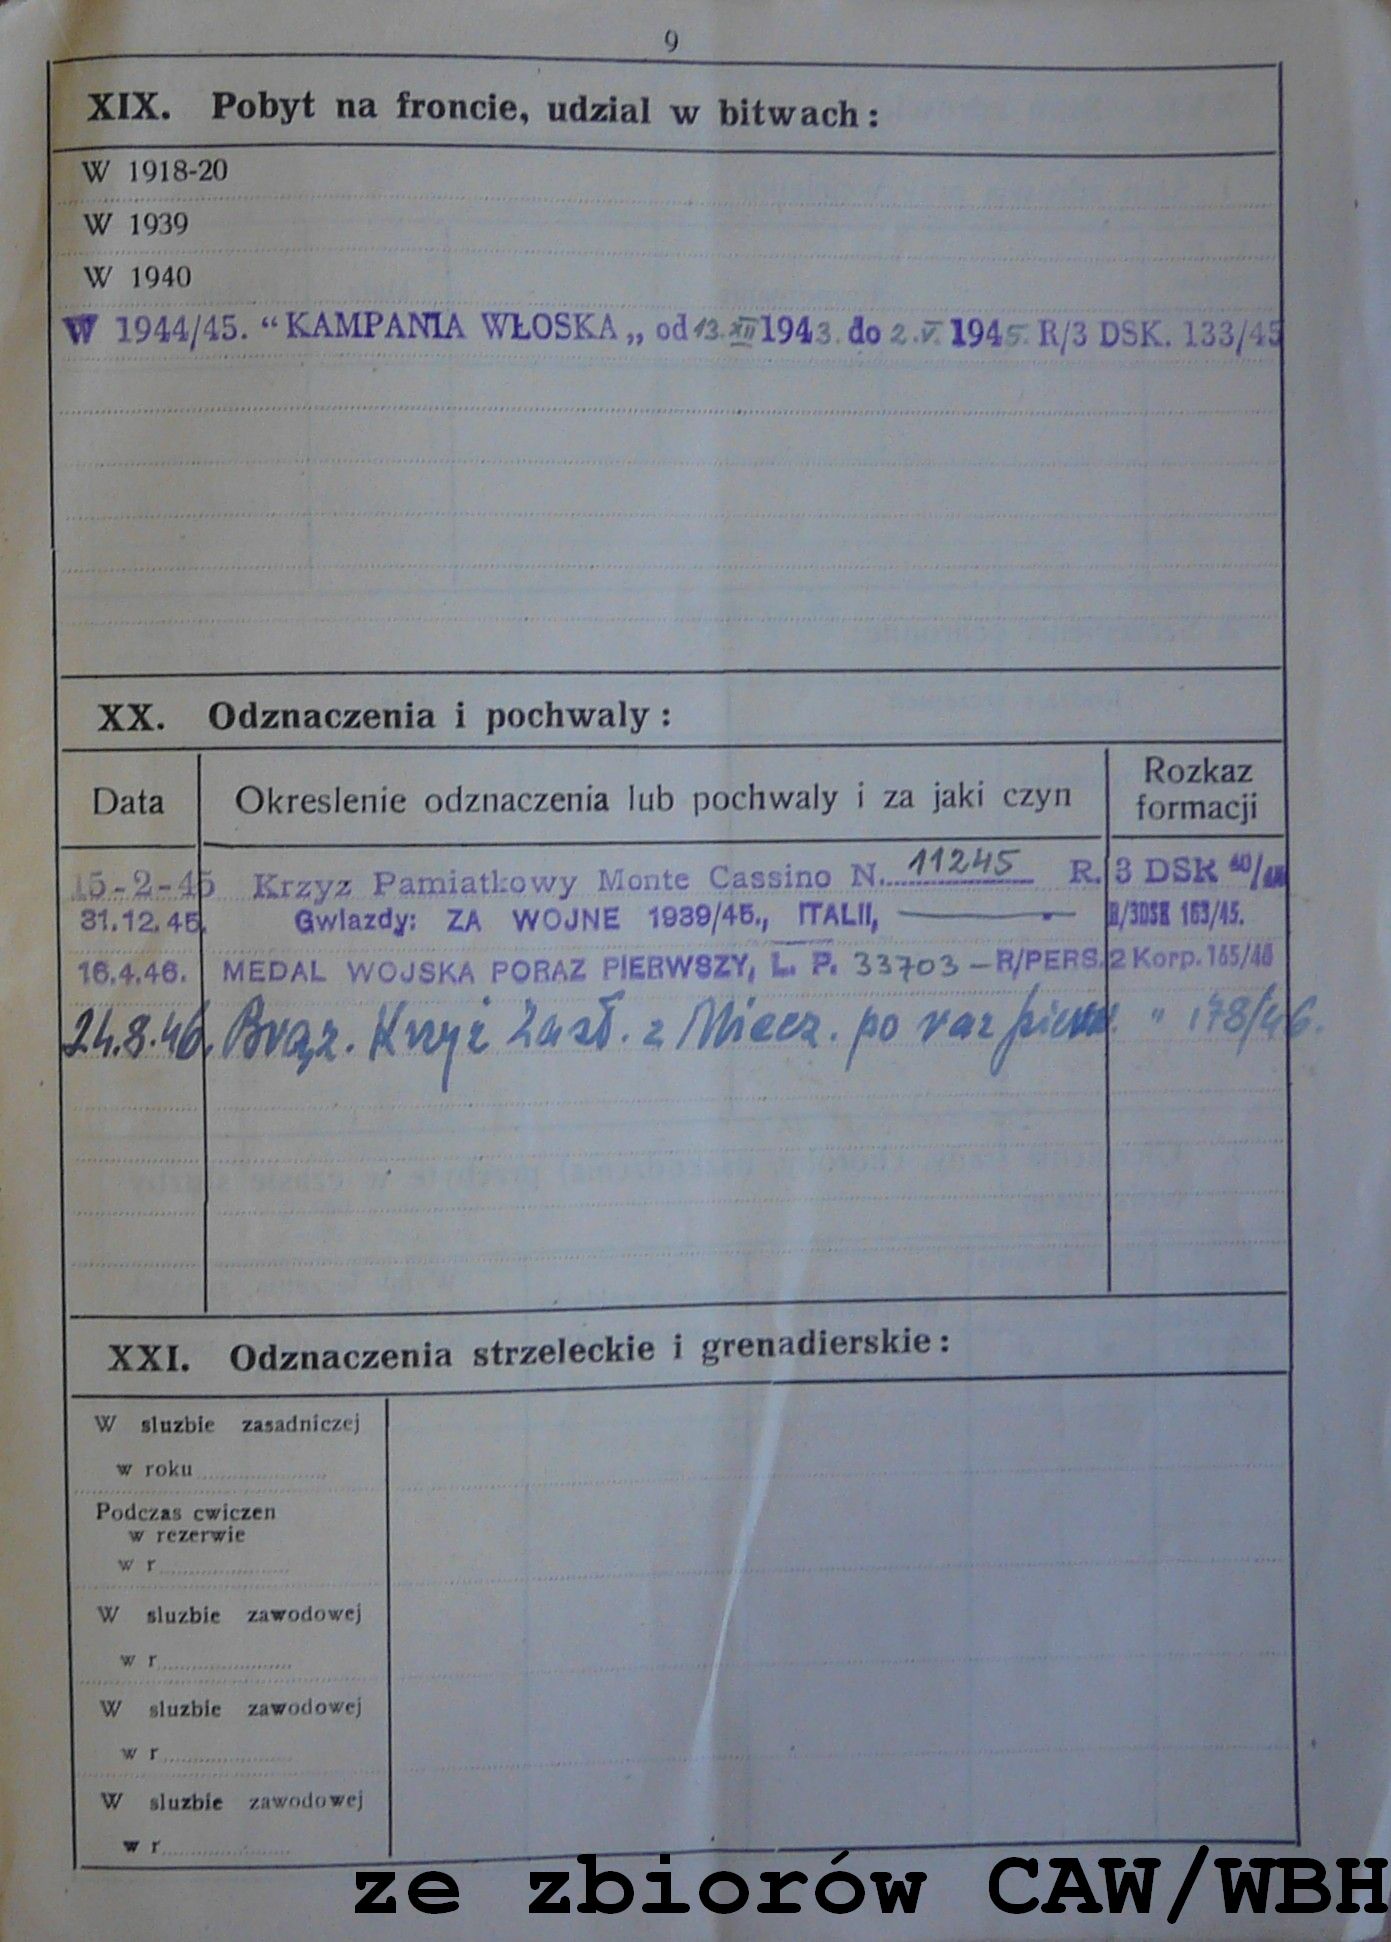 9
XIX. Pobyt na froncie, udzial w bitwach :
W 1918-20
W 1939
W 1940
W 1944/45. “KAMPANIA WŁOSKA„ od 13.XII 1943. do 2.V. 1945. R/3 DSK. 133/45
XX. Odznaczenia i pochwaly :
Data Okreslenie odznaczenia lub pochwaly i za jaki czyn Rozkaz formacji
15-2-45 Krzyz Pamiatkowy Monte Cassino N. 11245 R. 3 DSK 40/
31.12.45. Gwiazdy: ZA WOJNE 1939/45., ITALII, R/3DSK 163/45.
16.4.46. MEDAL WOJSKA PORAZ PIERWSZY, L. P. 33703 – R/PERS. 2 Korp. 165/46
24.8.46. Brąz. Krzyż Zasł. z Miecz. po raz pierw. " 178/46.
XXI. Odznaczenia strzeleckie i grenadierskie :
W sluzbie zasadniczej
w roku
Podczas cwiczen
w rezerwie
w r
W sluzbie zawodowej
w r
W sluzbie zawodowej
w r
W sluzbie zawodowej
w r
ze zbiorów CAW/WBH